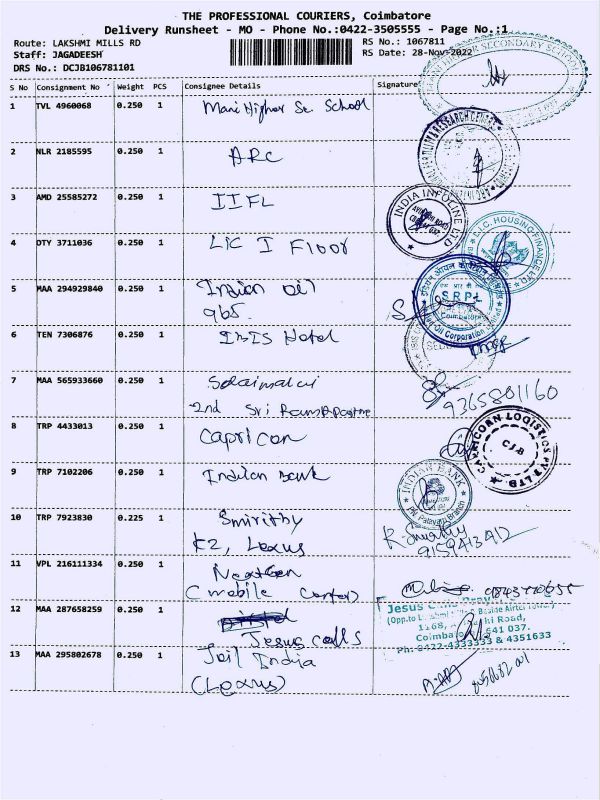 THE PROFESSIONAL COURIERS, Coimbatore
Delivery Runsheet - MO - Phone No.:0422-3505555 - Page No.:1
Route: LAKSHMI MILLS RD
Staff: JAGADEESH
DRS No.: DCJB106781101
RS No.: 1067811
RS Date: 28-Nov-2022
S No Consignment No Weight PCS Consignee Details Signature
1 TVL 4960068 0.250 1 Mani Higher Sc School
2 NLR 2185595 0.250 1 ARC
3 AMD 25585272 0.250 1 IIFL
INDIA INFOLINE LTD
4 OTY 3711036 0.250 1 LIC I Floor
L.I.C. HOUSING FINANCE LTD
5 MAA 294929840 0.250 1 Indian oil
965.
S R P L
Coimbatore
6 TEN 7306876 0.250 1 IBIS Hotel
7 MAA 565933660 0.250 1 Solaimalai
2nd Sri
9365801160
8 TRP 4433013 0.250 1 Capricon
CAPRICORN LOGISTICS PVT LTD.
CJB
9 TRP 7102206 0.250 1 Indian Bank
INDIAN BANK
Branch
10 TRP 7923830 0.225 1 Smirithy
K2, Lexus
9159413412
11 VPL 216111334 0.250 1 NextGen
(mobile Center)
12 MAA 287658259 0.250 1
Jesus calls
Jesus
(Opp.to
1168,
Road,
641 037.
Ph: 0422-4333333 & 4351633
13 MAA 295802678 0.250 1 Jail India
(Lexus)